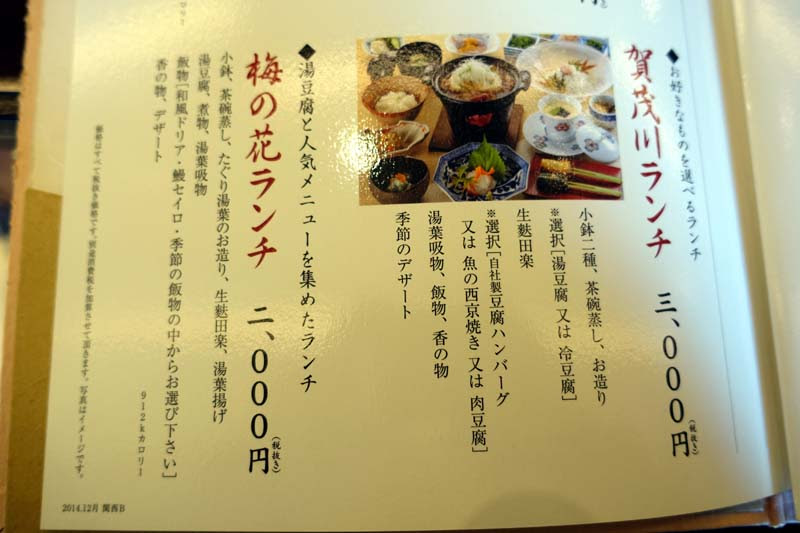 ◆お好きなものを選べるランチ
賀茂川ランチ 三、000円(税抜き)
小鉢二種、茶碗蒸し、お造り
※選択[湯豆腐 又は 冷豆腐]
生麩田楽
※選択[自社製豆腐ハンバーグ
又は 魚の西京焼き 又は 肉豆腐]
湯葉吸物、飯物、香の物
季節のデザート
◆湯豆腐と人気メニューを集めたランチ
梅の花ランチ 二、000円(税抜き)
小鉢、茶碗蒸し、たぐり湯葉のお造り、生麩田楽、湯葉揚げ
湯豆腐、煮物、湯葉吸物
飯物[和風ドリア・鰻セイロ・季節の飯物の中からお選び下さい]
香の物、デザート
912kカロリー
価格はすべて税抜き価格です。別途消費税を加算させて頂きます。写真はイメージです。
2014.12月 関西B